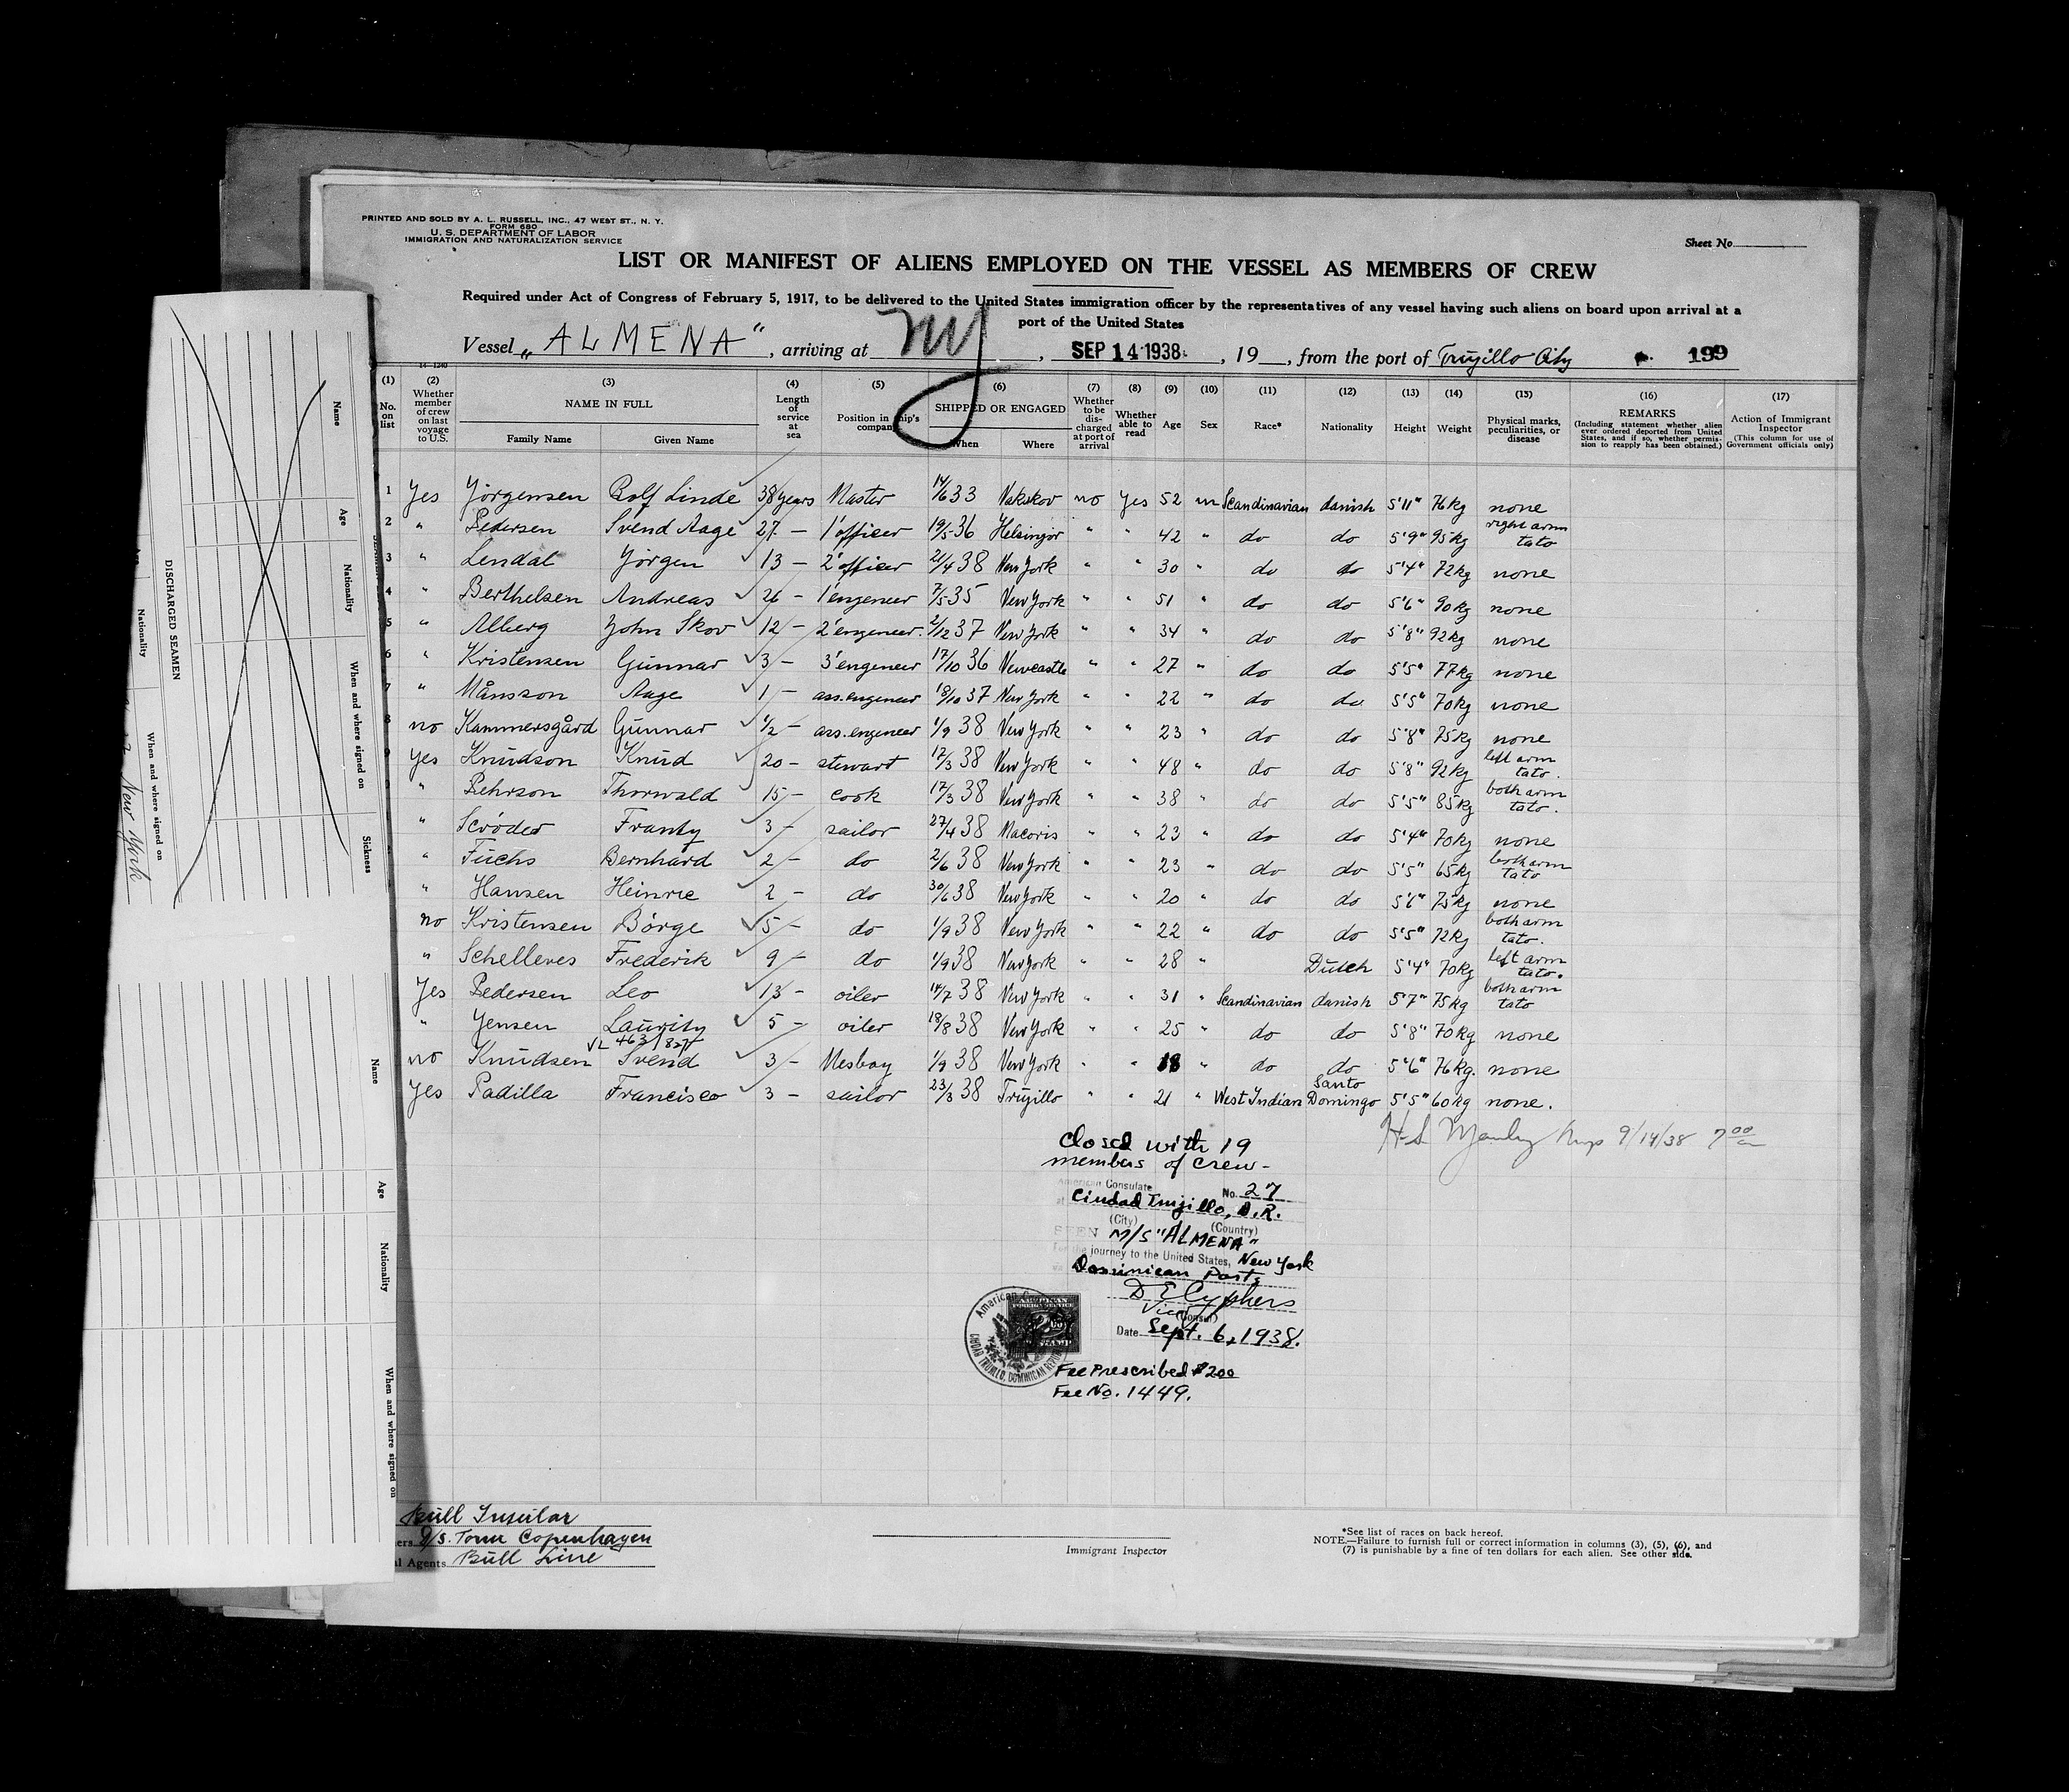 PRINTED AND SOLD BY A. L. RUSSELL, INC., 47 WEST ST., N. Y.
FORM 680
U. S. DEPARTMENT OF LABOR
IMMIGRATION AND NATURALIZATION SERVICE
Sheet No.
LIST OR MANIFEST OF ALIENS EMPLOYED ON THE VESSEL AS MEMBERS OF CREW
Required under Act of Congress of February 5, 1917, to be delivered to the United States immigration officer by the representatives of any vessel having such aliens on board upon arrival at a
port of the United States
Vessel „ALMENA“, arriving at NY, SEP 14 1938, 19 , from the port of Trujillo City 199
(1) No. on list (2) Whether member of crew on last voyage to U.S. (3) NAME IN FULL Family Name Given Name (4) Length of service at sea (5) Position in ship's company (6) SHIPPED OR ENGAGED When Where (7) Whether to be discharged at port of arrival (8) Whether able to read (9) Age (10) Sex (11) Race* (12) Nationality (13) Height (14) Weight (15) Physical marks, peculiarities, or disease (16) REMARKS (Including statement whether alien ever ordered deported from United States, and if so, whether permission to reapply has been obtained.) (17) Action of Immigrant Inspector (This column for use of Government officials only)
1 Yes Jörgensen Rolf Linde 38 years Master 14/6 33 Nakskov no Yes 52 m Scandinavian danish 5'11" 76kg none
2 " Pedersen Svend Aage 27 — 1' officer 19/5 36 Helsingör " " 42 " do do 5'9" 95kg right arm tato
3 " Lendal Jörgen 13 — 2' officer 21/4 38 New York " " 30 " do do 5'4" 72kg none
4 " Berthelsen Andreas 26 — 1 engeneer 7/5 35 New York " " 51 " do do 5'6" 90kg none
5 " Alberg John Skov 12 — 2' engeneer. 2/12 37 New York " " 34 " do do 5'8" 92kg none
6 " Kristensen Gunnar 3 — 3' engeneer 17/10 36 Newcastle " " 27 " do do 5'5" 77kg none
7 " Månsson Aage 1 — ass. engeneer 18/10 37 New York " " 22 " do do 5'5" 70kg none
8 no Kammersgård Gunnar 1/2 — ass. engeneer 1/9 38 New York " " 23 " do do 5'8" 75kg none
9 Yes Knudson Knud 20 — stewart 17/3 38 New York " " 48 " do do 5'8" 92kg left arm tato.
" Pehrson Thorwald 15 — cook 17/3 38 New York " " 38 " do do 5'5" 85kg both arm tato.
" Scröder Frantz 3 — sailor 27/4 38 Macoris " " 23 " do do 5'4" 70kg none
" Fuchs Bernhard 2 — do 2/6 38 New York " " 23 " do do 5'5" 65kg both arm tato
" Hansen Heinrie 2 — do 30/6 38 New York " " 20 " do do 5'6" 75kg none
no Kristensen Börge 5 — do 1/9 38 New York " " 22 " do do 5'5" 72kg both arm tato.
" Schelleves Frederik 9 — do 1/9 38 New York " " 28 " Dutch 5'4" 70kg left arm tato.
Yes Pedersen Leo 13 — oiler 14/7 38 New York " " 31 " Scandinavian danish 5'7" 75kg both arm tato
" Jensen Lauritz 5 — oiler 18/8 38 New York " " 25 " do do 5'8" 70kg none
VL 463/827
no Knudsen Svend 3 — Mesboy 1/9 38 New York " " 18 " do do 5'6" 76kg. none
Yes Padilla Francisco 3 — sailor 23/3 38 Trujillo " " 21 " West Indian Santo Domingo 5'5" 60kg none.
9/14/38 7 00
Closed with 19
members of crew —
American Consulate No. 27
at Ciudad Trujillo, D.R.
(City) (Country)
SEEN M/S "ALMENA"
For the journey to the United States, New York
via Dominican Ports
D E Cyphers
Vice
(Consul)
Date Sept. 6, 1938.
Fee Prescribed $200
Fee No. 1449.
American
CIUDAD TRUJILLO, DOMINICAN REPUBLIC
Bull Insular
D/S. Torm Copenhagen
Agents Bull Line
Immigrant Inspector
*See list of races on back hereof.
NOTE.—Failure to furnish full or correct information in columns (3), (5), (6), and
(7) is punishable by a fine of ten dollars for each alien. See other side.
Name
Age
Nationality
When and where signed on
Sickness
DISCHARGED SEAMEN
Nationality
When and where signed on
New York
Name
Age
Nationality
When and where signed on